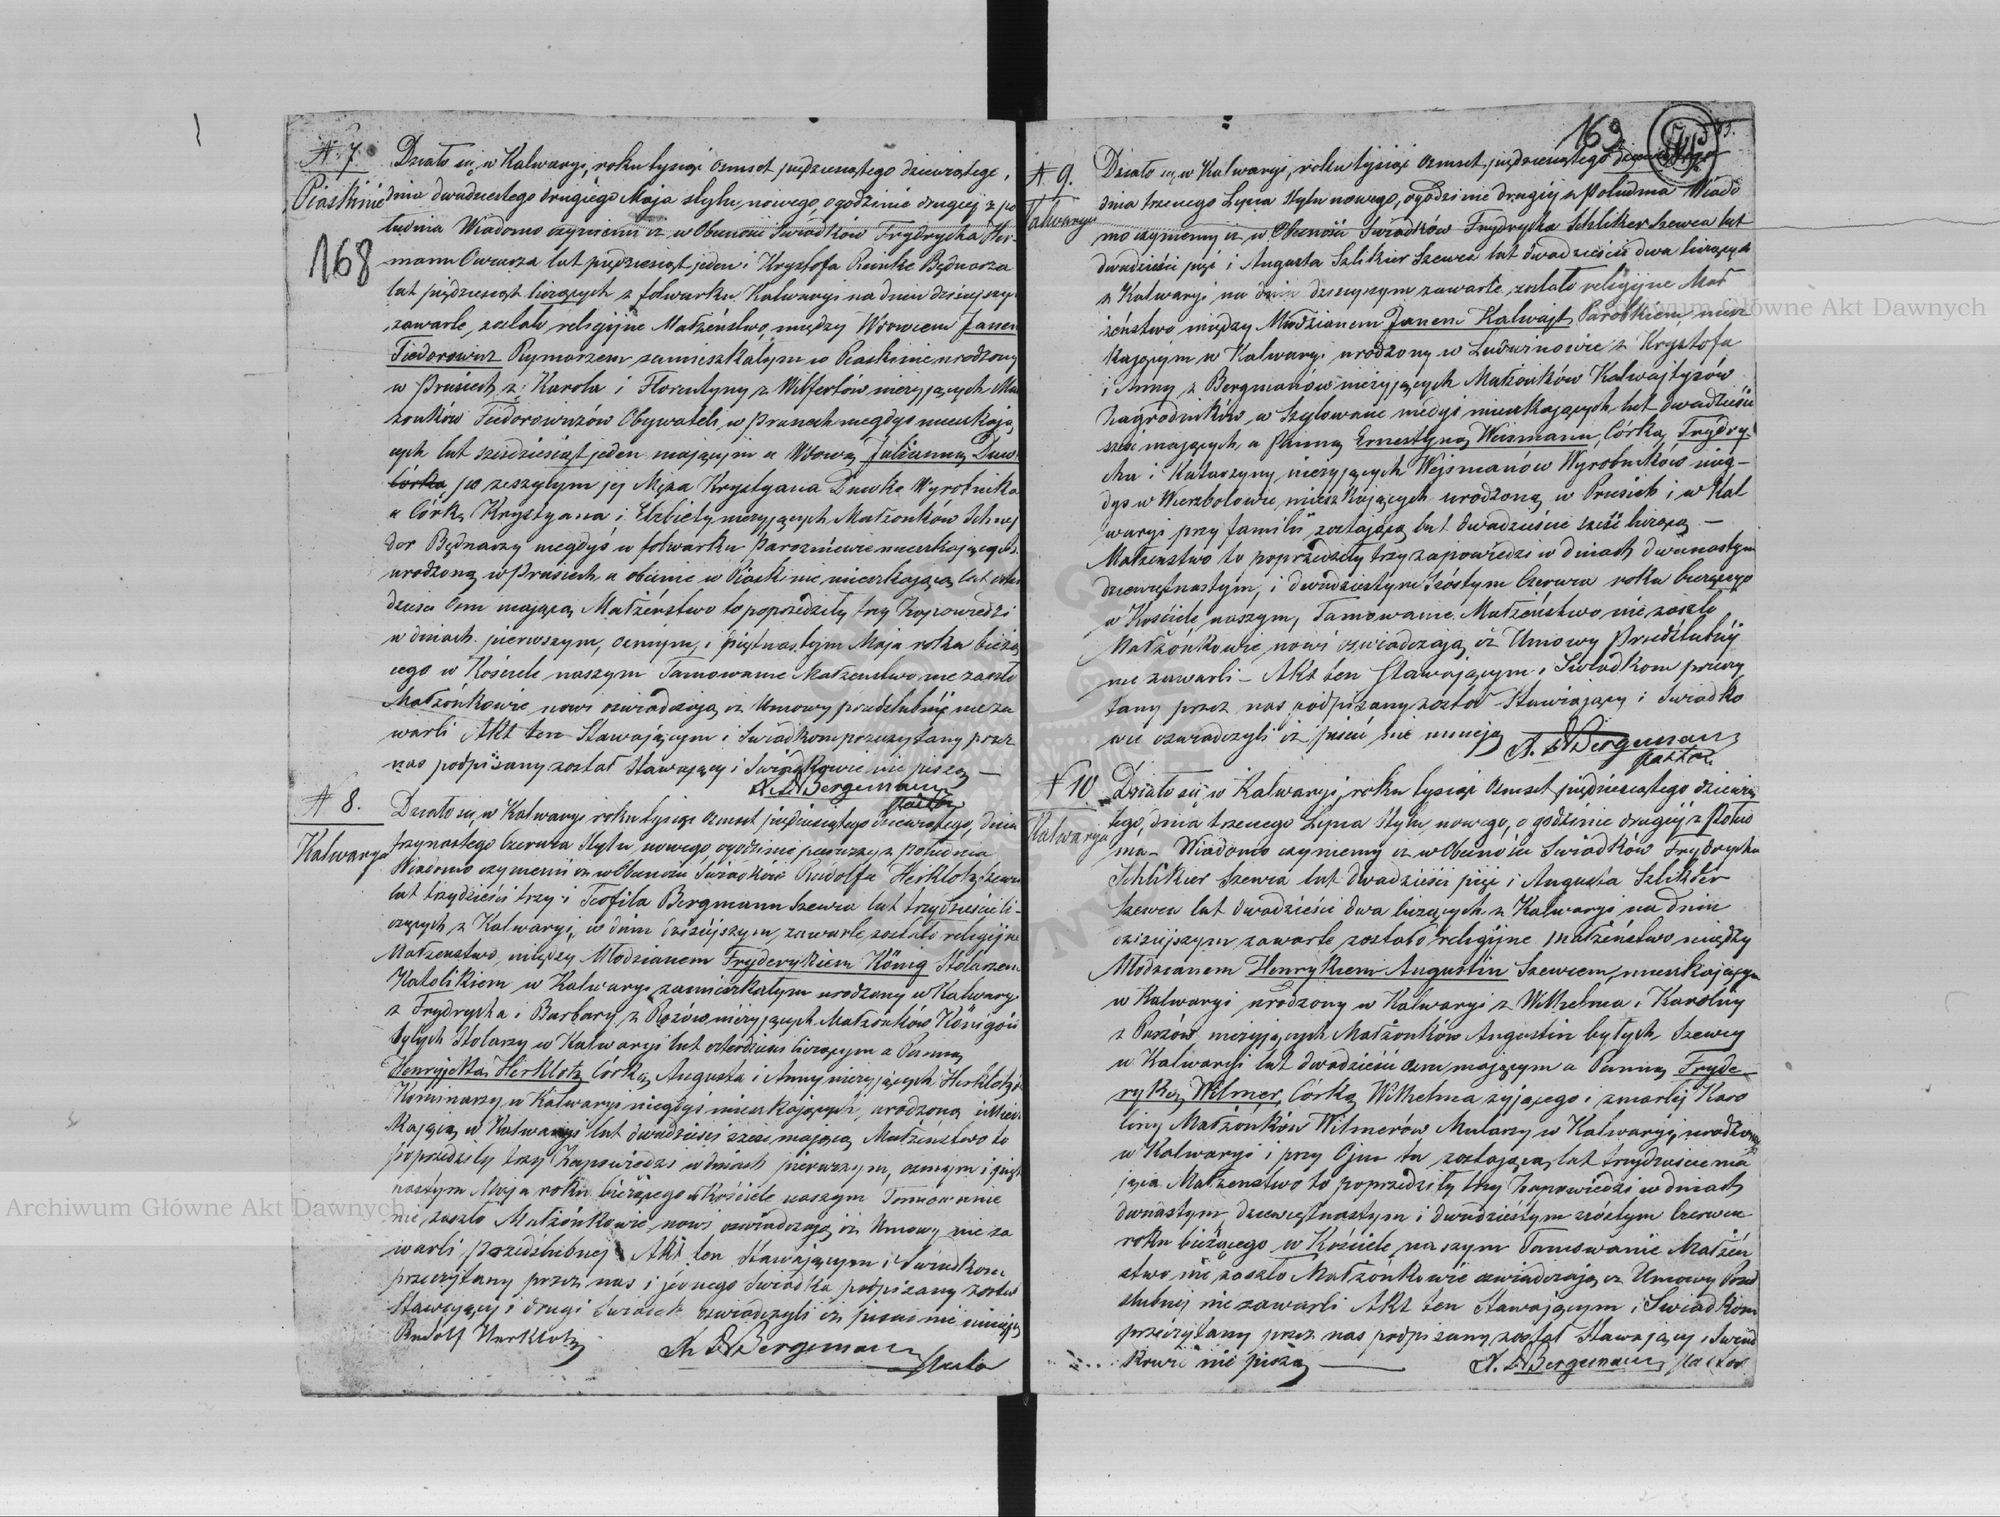 N 7.
Piaskinie
168
Działo się w Kalwaryi, roku tysiąc osmset pięćdziesiątego dziewiątego,
dnia dwudziestego drugiego Maja stylu nowego, o godzinie drugiej z po
ludnia Wiadomo czyniemy iż w Obecności Swiadków Frydrycha Her-
mann Owczarza lat pięćdziesiąt jeden i Krysztofa Reinke Bednarza
lat pięćdziesiąt liczących z folwarku Kalwaryi na dniu dzisiejszym
zawarte zostało religijne Małżeństwo między Wdowcem Janem
Fiedorowicz Rymarzem zamieszkałym w Piaskinie urodzony
w Prusiech z Karola i Florentyny z Wilfertów nieżyjących Mał
żonków Fiedorowiczów Obywateli w Prusiech niegdyś mieszkają
cych lat sześdziesiąt jeden mającym a Wdową Julianną Duw
po zeszłym jej Mężu Krystyana Duwke Wyrobnika
a Córką Krystyana i Elżbiety nieżyjących Małżonków Schnej
der Bednarzy niegdyś w folwarku mieszkających
urodzoną w Prusiech a obecnie w Piaskinie mieszkającą lat czter
dzieści Osm mającą Małżeństwo to poprzedziły trzy Zapowiedzi
w dniach pierwszym, osmym, i piętnastym Maja roku bieżą
cego w Kościele naszym Tamowanie Małżeństwo nie zaszło
Małżonkowie nowi oswiadczają iż Umowy przedślubnéj nie za
warli Akt ten Stawającym i Swiadkom przeczytany przez
nas podpisany został Stawający i Swiadkowie nie piszą —
Bergemann
Pastor
N 8.
Kalwarya
Działo się w Kalwaryi roku tysiąc osmset pięćdziesiątego dziewiątego, dnia
trzynastego Czerwca Stylu nowego o godzinie pierwszej z południa
Wiadomo czyniemy iż w Obecności Swiadków Rudolfa Herklotz Szewca
lat trzydzieści trzy i Teofila Bergmann Szewca lat trzydzieści li-
czących z Kalwaryi, w dniu dzisiejszym, zawarte zostało religijne
Małżeństwo, między Młodzianem Fryderykiem König Stolarzem
Katolikiem w Kalwaryi zamieszkałym urodzony w Kalwaryi
z Frydrycha i Barbary z Rozów nieżyjących Małżonków Königów
byłych Stolarzy w Kalwaryi lat czterdzieści liczącym a Panną
Henryjetką Herklotz Córką Augusta i Anny nieżyjących Herklotzów
Kominarzy w Kalwaryi niegdyś mieszkających, urodzoną i Miesz
kającą w Kalwaryi lat dwadzieścia sześć mającą Małżeństwo to
poprzedziły trzy Zapowiedzi w dniach pierwszym, osmym i pięt
nastym Maja roku bieżącego w Kościele naszym Tamowanie
nie zaszło Małżonkowie nowi oswiadczają iż Umowy nie za
warli przedślubnej Akt ten Stawającym i Swiadkom
przeczytany przez nas i jednego Swiadka podpisany został
Stawający i drugi Swiadek oswiadczyli iż pisac nie umieją
Rudolf Herklotz
Bergemann
Pastor
169
N 9.
Kalwarya
Działo się w Kalwaryi, roku tysiąc osmset pięćdziesiątego dziewiątego
dnia trzeciego Lipca Stylu nowego, o godzinie drugiéj z Południa Wiado
mo czyniemy iż w Obecności Swiadków Frydrycha Schliker Szewca lat
dwadzieścia pięć i Augusta Szlikier Szewca lat dwadzieścia dwa liczących
z Kalwaryi na dniu dzisiejszym zawarte zostało religijne Mał
żeństwo między Młodzianem Janem Kalwajt Parobkiem, miesz
kającym w Kalwaryi urodzony w Ludwinowie z Krysztofa
i Anny z Bergmanów nieżyjących Małżonków Kalwajtysów
Zagrodników, w Szylowanie niedyś mieszkających lat dwadzieścia
sześć mających, a Panną Ernestyną Weismann, Córką, Frydry
cha i Katarzyny nieżyjących Wejsmanów Wyrobników nieg-
dyś w Wierzbołowie mieszkających urodzoną w Prusiech i w Kal
waryi przy familii zostającą lat dwadzieście sześć liczącą —
Małżeństwo to poprzedziły trzy zapowiedzi w dniach dwunastym
dziewiętnastym, i dwudziestym szóstym Czerwca roku bieżącego
w Kościele naszym, Tamowanie Małżeństwo nie zaszło,
Małżonkowie nowi oswiadczają iż Umowy Przedślubnéj
nie zawarli — Akt ten Stawającym i Swiadkom przeczy
tany przez nas podpisany został Stawiający i Swiadko
wie oswiadczyli iż pisać nie umieją
Bergemann
Pastor
N 10.
Kalwarya
Działo się w Kalwaryi, roku tysiąc osmset pięćdziesiątego dziewią
tego, dnia trzeciego Lipca Stylu nowego, o godzinie drugiéj z Połud
nia — Wiadomo czyniemy iż w Obecności Swiadków Frydrycha
Schlikier Szewca lat dwadzieścia pięć i Augusta Szlikier
Szewca lat dwadzieścia dwa liczących z Kalwaryi na dniu
dzisiejszym zawarte zostało religijne małżeństwo między
Młodzianem Henrykiem Augustin Szewcem, mieszkającym
w Kalwaryi urodzony w Kalwaryi z Wilhelma i Karoliny
z nieżyjących Małżonków Augustin byłych Szewcy
w Kalwaryi lat dwadzieścia osm, mającym a Panną Fryde-
ryką Wilmer, Córką Wilhelma żyjącego i zmarłej Karo
liny Małżonków Wilmerów Mularzy w Kalwaryi, urodzoną
w Kalwaryi i przy Ojcu tu zostającą, lat trzydzieście ma
jąca Małżeństwo to poprzedziły trzy Zapowiedzi w dniach
dwunastym, dziewiętnastym i dwudziestym szóstym Czerwca
roku bieżącego w Kościele naszym Tamowanie Małżeń
stwo nie zaszło Małżonkowie oswiadczają iż Umowy Przed
ślubnej nie zawarli Akt ten Stawającym i Swiadkom
przeczytany przez nas podpisany został Stawający i Swiad
kowie nie piszą —
Bergemann, Pastor
Archiwum Główne Akt Dawnych
Archiwum Główne Akt Dawnych